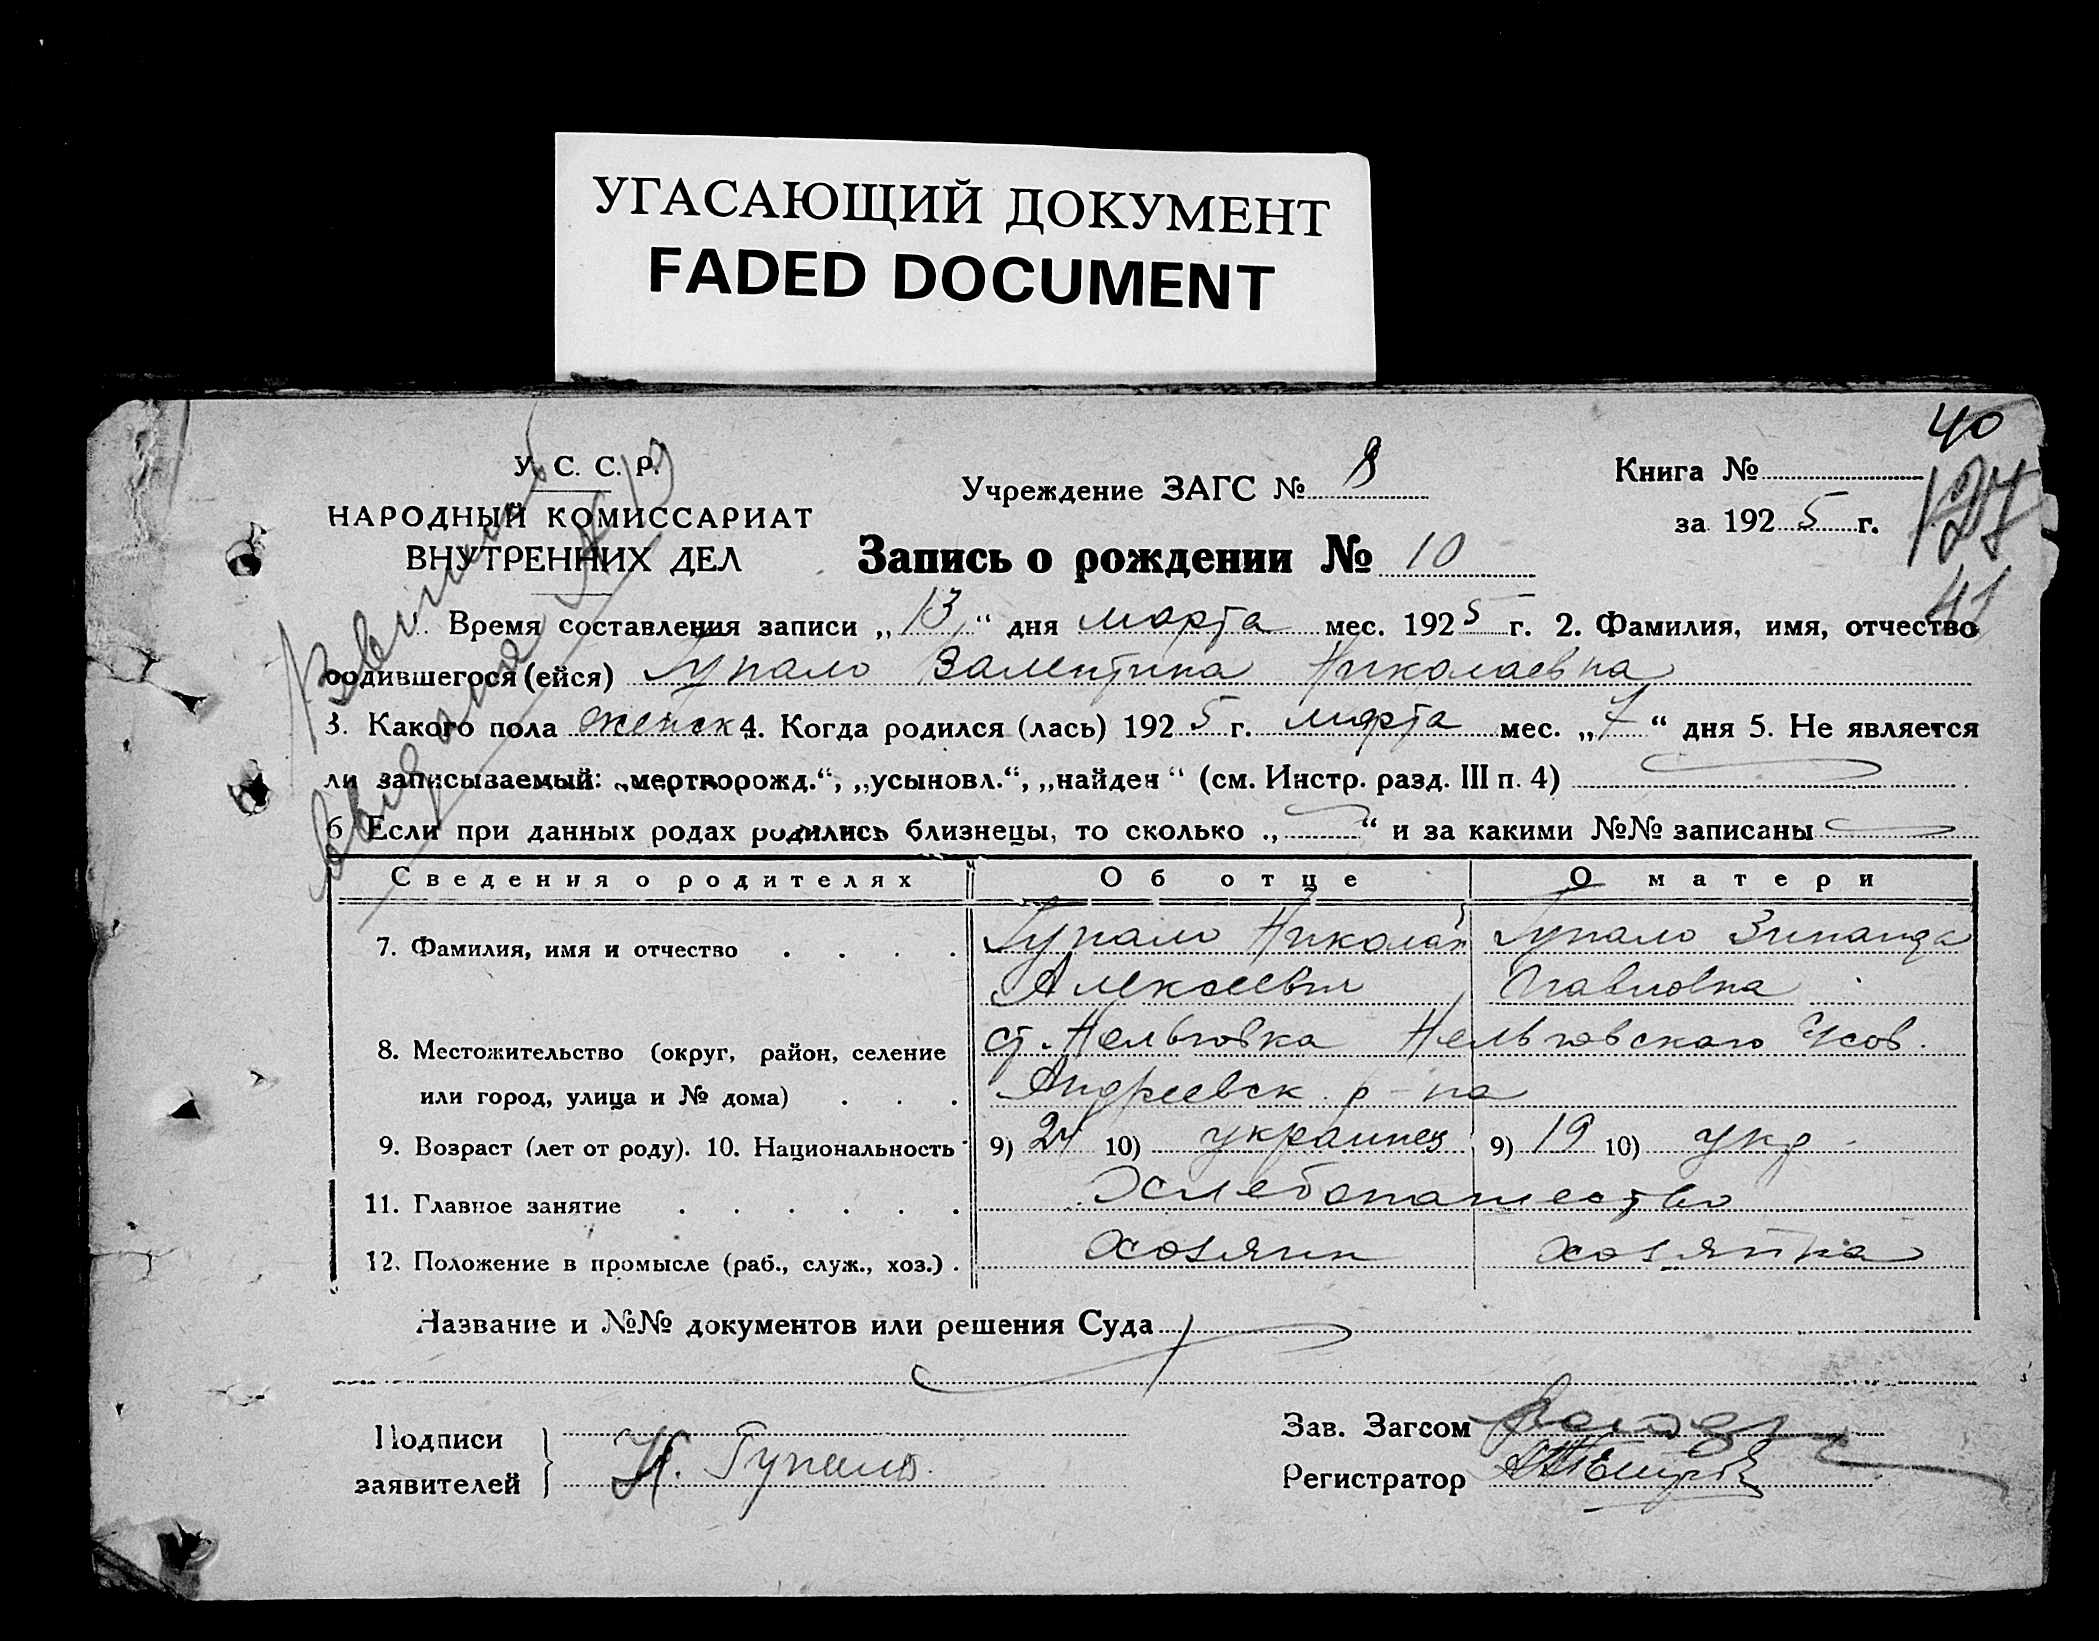 УГАСАЮЩИЙ ДОКУМЕНТ
FADED DOCUMENT
40
У. С. С. Р.
НАРОДНЫЙ КОМИССАРИАТ
ВНУТРЕННИХ ДЕЛ
Учреждение ЗАГС № 8
Книга №
127
за 1925 г.
Запись о рождении № 10
41
Время составления записи „13“ дня марта мес. 1925 г. 2. Фамилия, имя, отчество
родившегося (ейся) Гупало Валентина Николаевна
3. Какого пола женск 4. Когда родился (лась) 1925 г. марта мес. „7“ дня 5. Не является
ли записываемый: „мертворожд.“, „усыновл.“, „найден“ (см. Инстр. разд. III п. 4)
6 Если при данных родах родились близнецы, то сколько „ “ и за какими №№ записаны
Сведения о родителях Об отце О матери
7. Фамилия, имя и отчество Гупало Николай Гупало Зинаида
Алексеевич Павловна
8. Местожительство (округ, район, селение ст. Нельговка Нельговского
или город, улица и № дома) Андреевск р-на
9. Возраст (лет от роду). 10. Национальность 9) 24 10) украинец 9) 19 10) укр.
11. Главное занятие Хлебопашество
12. Положение в промысле (раб., служ., хоз.) хозяин хозяйка
Название и №№ документов или решения Суда
Подписи
заявителей Н. Гупало
Зав. Загсом
Регистратор